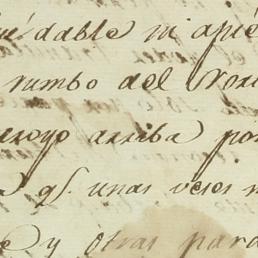 dable ni apié
rumbo del Nor
royo arriba por
qe. unas veces
y otras para